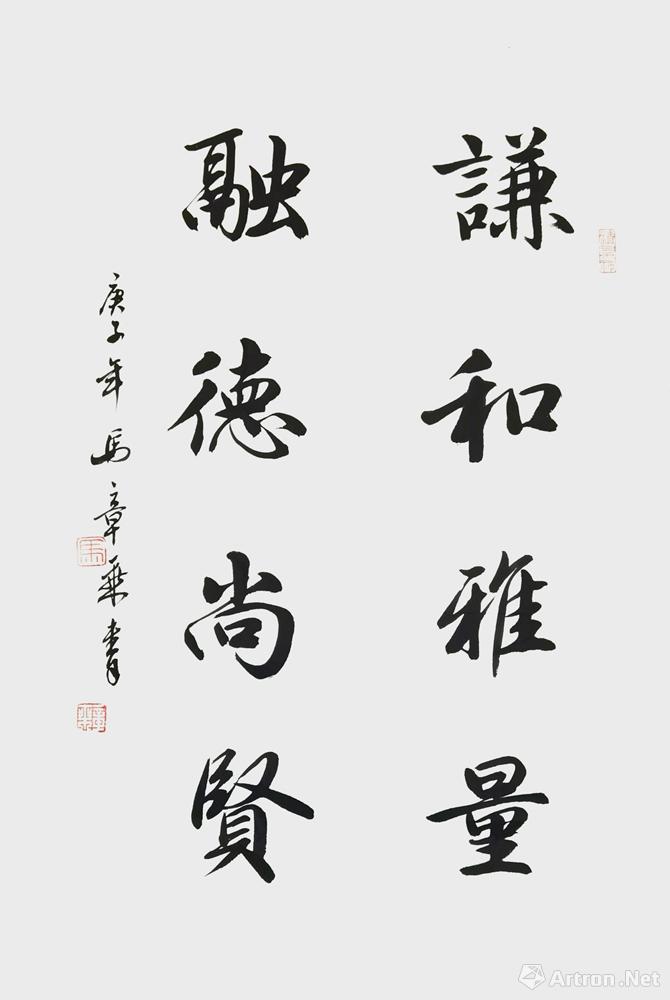 謙和雅量
融德尚賢
庚子年馬章乘書
Artron.Net